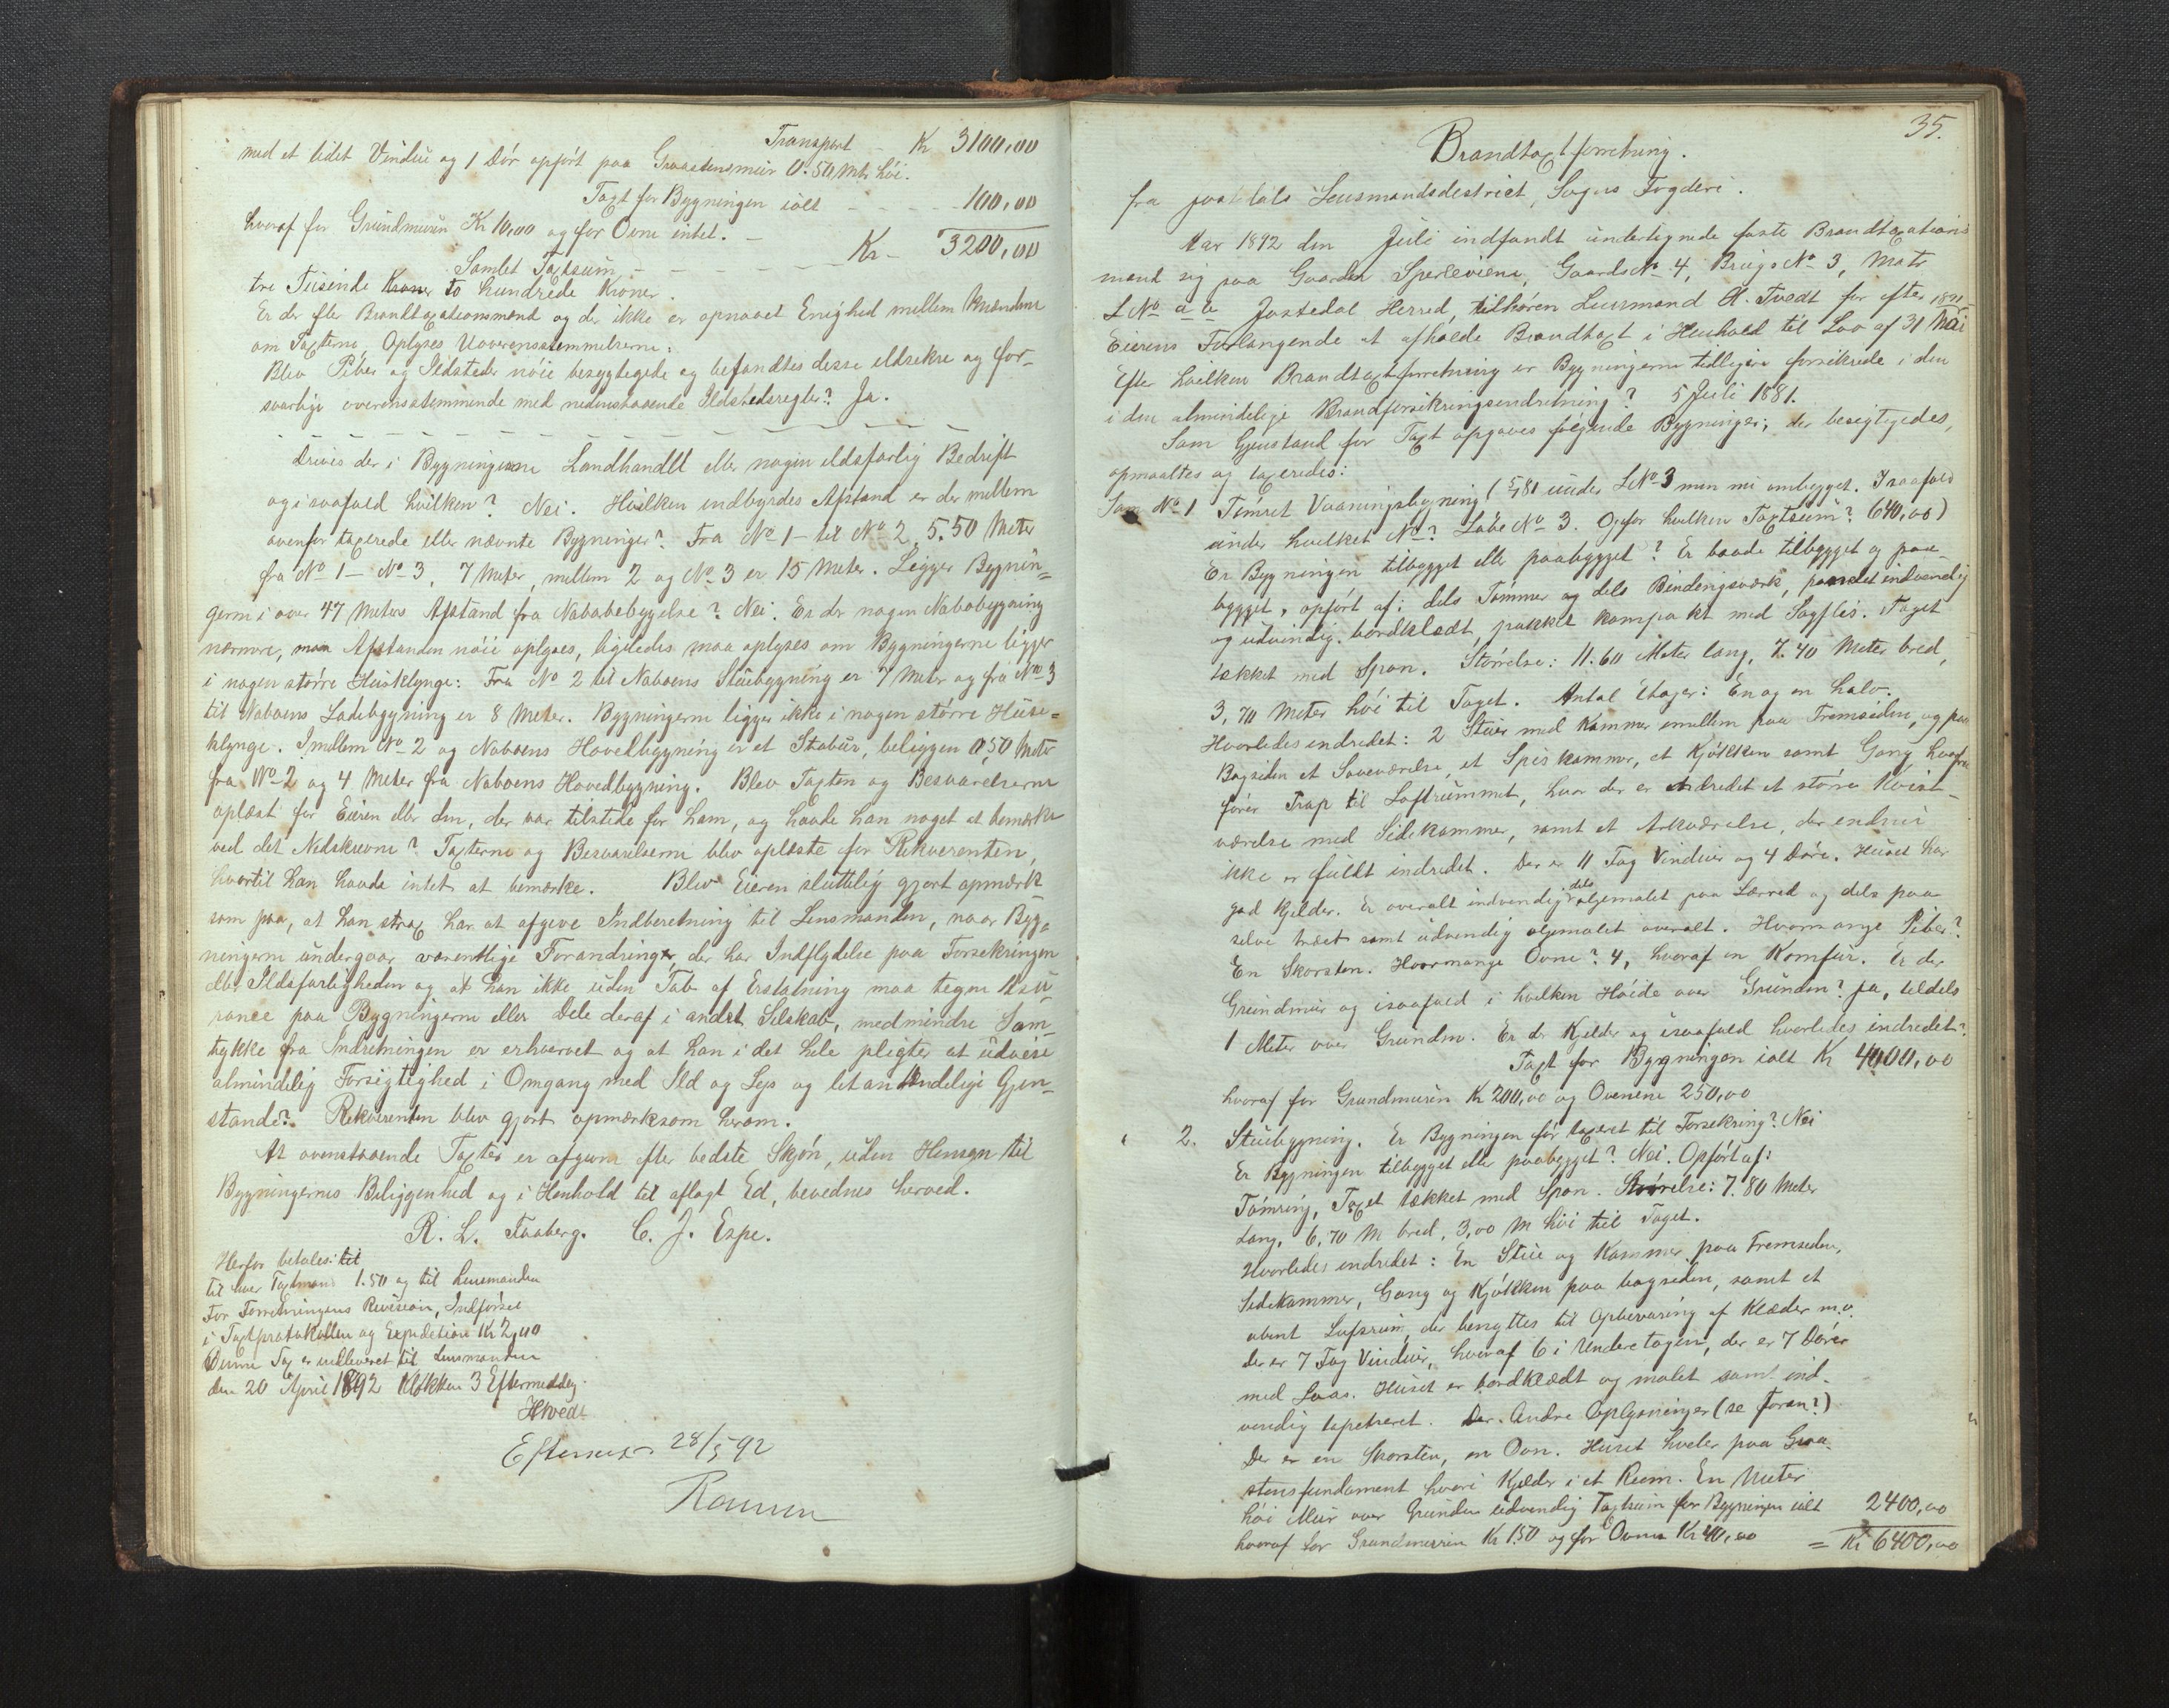 Transport - Kr 3100,00
med et lidet Vindue og 1 Dör opfört paa Graastensmur 0.50 Mtr höi.
Taxt for Bygningen ialt - - - - 100,00
hvoraf for Grundmuren Kr 10,00 og for Ovne intet. - Kr - 3200,00
Samlet Taxtsum - - - - -
tre Tusinde Kroner to hundrede Kroner.
Er der efter Brandtaxationsmænd og der ikke er opnaaet Enighed mellem Mændene
om Taxterne, Oplyses Uoverensstemmelserne:
Blev Piber og Ildsteder nöie besigtegede og befandtes disse ildsikre og for-
svarlige overensstemmende med nedenstaaende Ildstedsregler? Ja.
Drives der i Bygningerne Landhandel eller nogen ildsfarlig Bedrift
og i saafald hvilken? Nei. Hvilken indbyrdes Afstand er der mellem
ovenfor taxerede eller nævnte Bygninger? Fra No 1 - til No 2, 5.50 Meter
fra No 1 - No 3, 7 Meter, mellem 2 og No 3 er 15 Meter. Ligger Bygnin-
gerne i over 47 Meters Afstand fra Nabobebygelse? Nei. Er der nogen Nabobygning
nærmere, maa Afstanden nöie oplyses, ligeledes maa oplyses om Bygningerne ligger
i nogen större Husklynge: Fra No 2 til Naboens Stuebygning er 7 Meter og fra No 3
til Naboens Ladebygning er 8 Meter. Bygningerne ligger ikke i nogen större Huse-
klynge. Imellem No 2 og Naboens Hovedbygning er et Stabur, beliggen 0,50 Meter
fra No 2 og 4 Meter fra Naboens Hovedbygning. Blev Taxten og Besvarelserne
oplæst for Eieren eller den, der var tilstede for ham, og havde han noget at bemærke
ved det Nedskrevne? Taxterne og Besvarelserne blev oplæste for Rekvirenten,
hvortil han havde intet at bemærke. Blev Eieren sluttelig gjort opmærk-
som paa, at han strax har at afgive Indberetning til Lensmanden, naar Byg-
ningerne undergaar væsentlige Forandringer, der har Indflydelse paa Forsekringen
eller Ildsfarligheden og at han ikke uden Tab af Erstatning maa tegne Assu-
rance paa Bygningerne eller Dele deraf i andet Selskab, medmindre Sam-
tykke fra Indretningen er erhvervet og at han i det hele pligter at udvise
almindelig Forsigtighed i Omgang med Ild og Lys og let antændelige Gjen-
stande? Rekvirenten blev gjort opmærksom herom.
At ovenstaaende Taxter er afgivne efter bedste Skjön, uden Hensyn til
Bygningernes Beliggenhed og i Henhold til aflagt Ed, bevidnes herved.
R. L. Faaberg. C. J. Espe.
Herfor betales: til
til hver Taxtmand 1.50 og til Lensmanden
For Forretningens Revision, Indförsel
i Taxtprotokollen og Expedition Kr 2,00
Denne Tax er indleveret til Lensmanden
den 20 April 1892 Klokken 3 Eftermiddag.
HTvedt
Efterseet 28/5 92
35.
Brandtaxtforretning.
fra Jostedals Lensmandsdestrict, Sogns Fogderi.
Aar 1892 den Juli indfandt undertegnede faste Brandtaxations
mænd sig paa Gaarden Sperleviene, Gaards No 4, Brugs No 3, Matr
L No a b Jostedal Herred, tilhören Lensmand H. Tvedt for efter
Eierens Forlangende at afholde Brandtaxt i Henhold til Lov af 31 Mai 1891
Efter hvilken Brandtaxtforretning er Bygningerne tidligere forsikrede i den
i den almindelige Brandforsikringsindretning? 5 Juli 1881.
Som Gjenstand for Taxt opgaves fölgende Bygninger; der besigtigedes,
opmaaltes og taxeredes:
Som No 1 Tömret Vaaningsbygning (5/7 81 under L No 3 men nu ombygget. Isaafald
under hvilket No? Löbe No 3. Og for hvilken Taxtsum? 640,00)
Er Bygningen tilbygget eller paabygget? Er baade tilbygget og paa-
bygget, opfört af: dels Tömmer og dels Bindingsværk, panelet indvendig
og udvindig bordklædt, pakket kompakt med Sagflis. Taget
tækket med Spon. Störrelse: 11.60 Meter lang, 7.40 Meter bred,
3,70 Meter höi til Taget. Antal Etager: En og en halv.
Hvorledes indredet: 2 Stuer med Kammer imellem paa Fremsiden, og paa
Bagsiden et Soveværelse, et Spiskammer, et Kjökken samt Gang hvorfra
förer Trap til Loftrummet, hvor der er indredet et större Kvist-
værelse med Sidekammer, samt et Arkværelse, der endnu
ikke er fuldt indredet. Der er 11 Fag Vinduer og 4 Döre. Huset har
god Kjelder. Er overalt indvendig dels oljemalet paa Lærred og dels paa
selve træet samt udvendig oljemalet overalt. Hvormange Piber?
En Skorsten. Hvormange Ovne? 4, hvoraf en Komfur. Er der
Grundmur og isaafald i hvilken Höide over Grunden? Ja, tildels
1 Meter over Grunden. Er der Kjelder og isaafald hvorledes indredet?
Taxt for Bygningen ialt Kr 4000,00
hvoraf for Grundmuren Kr 200,00 og Ovenene 250,00
2. Stuebygning. Er Bygningen för taxeret til Forsekring? Nei
Er Bygningen tilbygget eller paabygget? Nei. Opfört af:
Tömring, Taget tækket med Spon. Störrelse: 7.80 Meter
Lang, 6,70 M bred, 3,00 M höi til Taget.
Hvorledes indredet: En Stue og Kammer paa Fremsiden,
Sidekammer, Gang og Kjökken paa bagsiden, samt et
abent Loftsrum, der benyttes til Opbevaring af Klæder m.v.
der er 7 Fag Vinduer, hvoraf 6 i Underetagen, der er 7 Dörer
med Laas. Huset er bordklædt og malet samt ind-
vendig tapetseret. Andre Oplysninger (se foran?)
Der er en Skorsten, en Ovn. Huset hviler paa Graa-
stensfundament hvori Kjelder i et Rum. En Meter
höi Mur over Grunden udvendig Taxtsum for Bygningen ialt 2400,00
hvoraf for Grundmuren Kr 150 og for Ovnen Kr 40,00 = Kr 6400,00